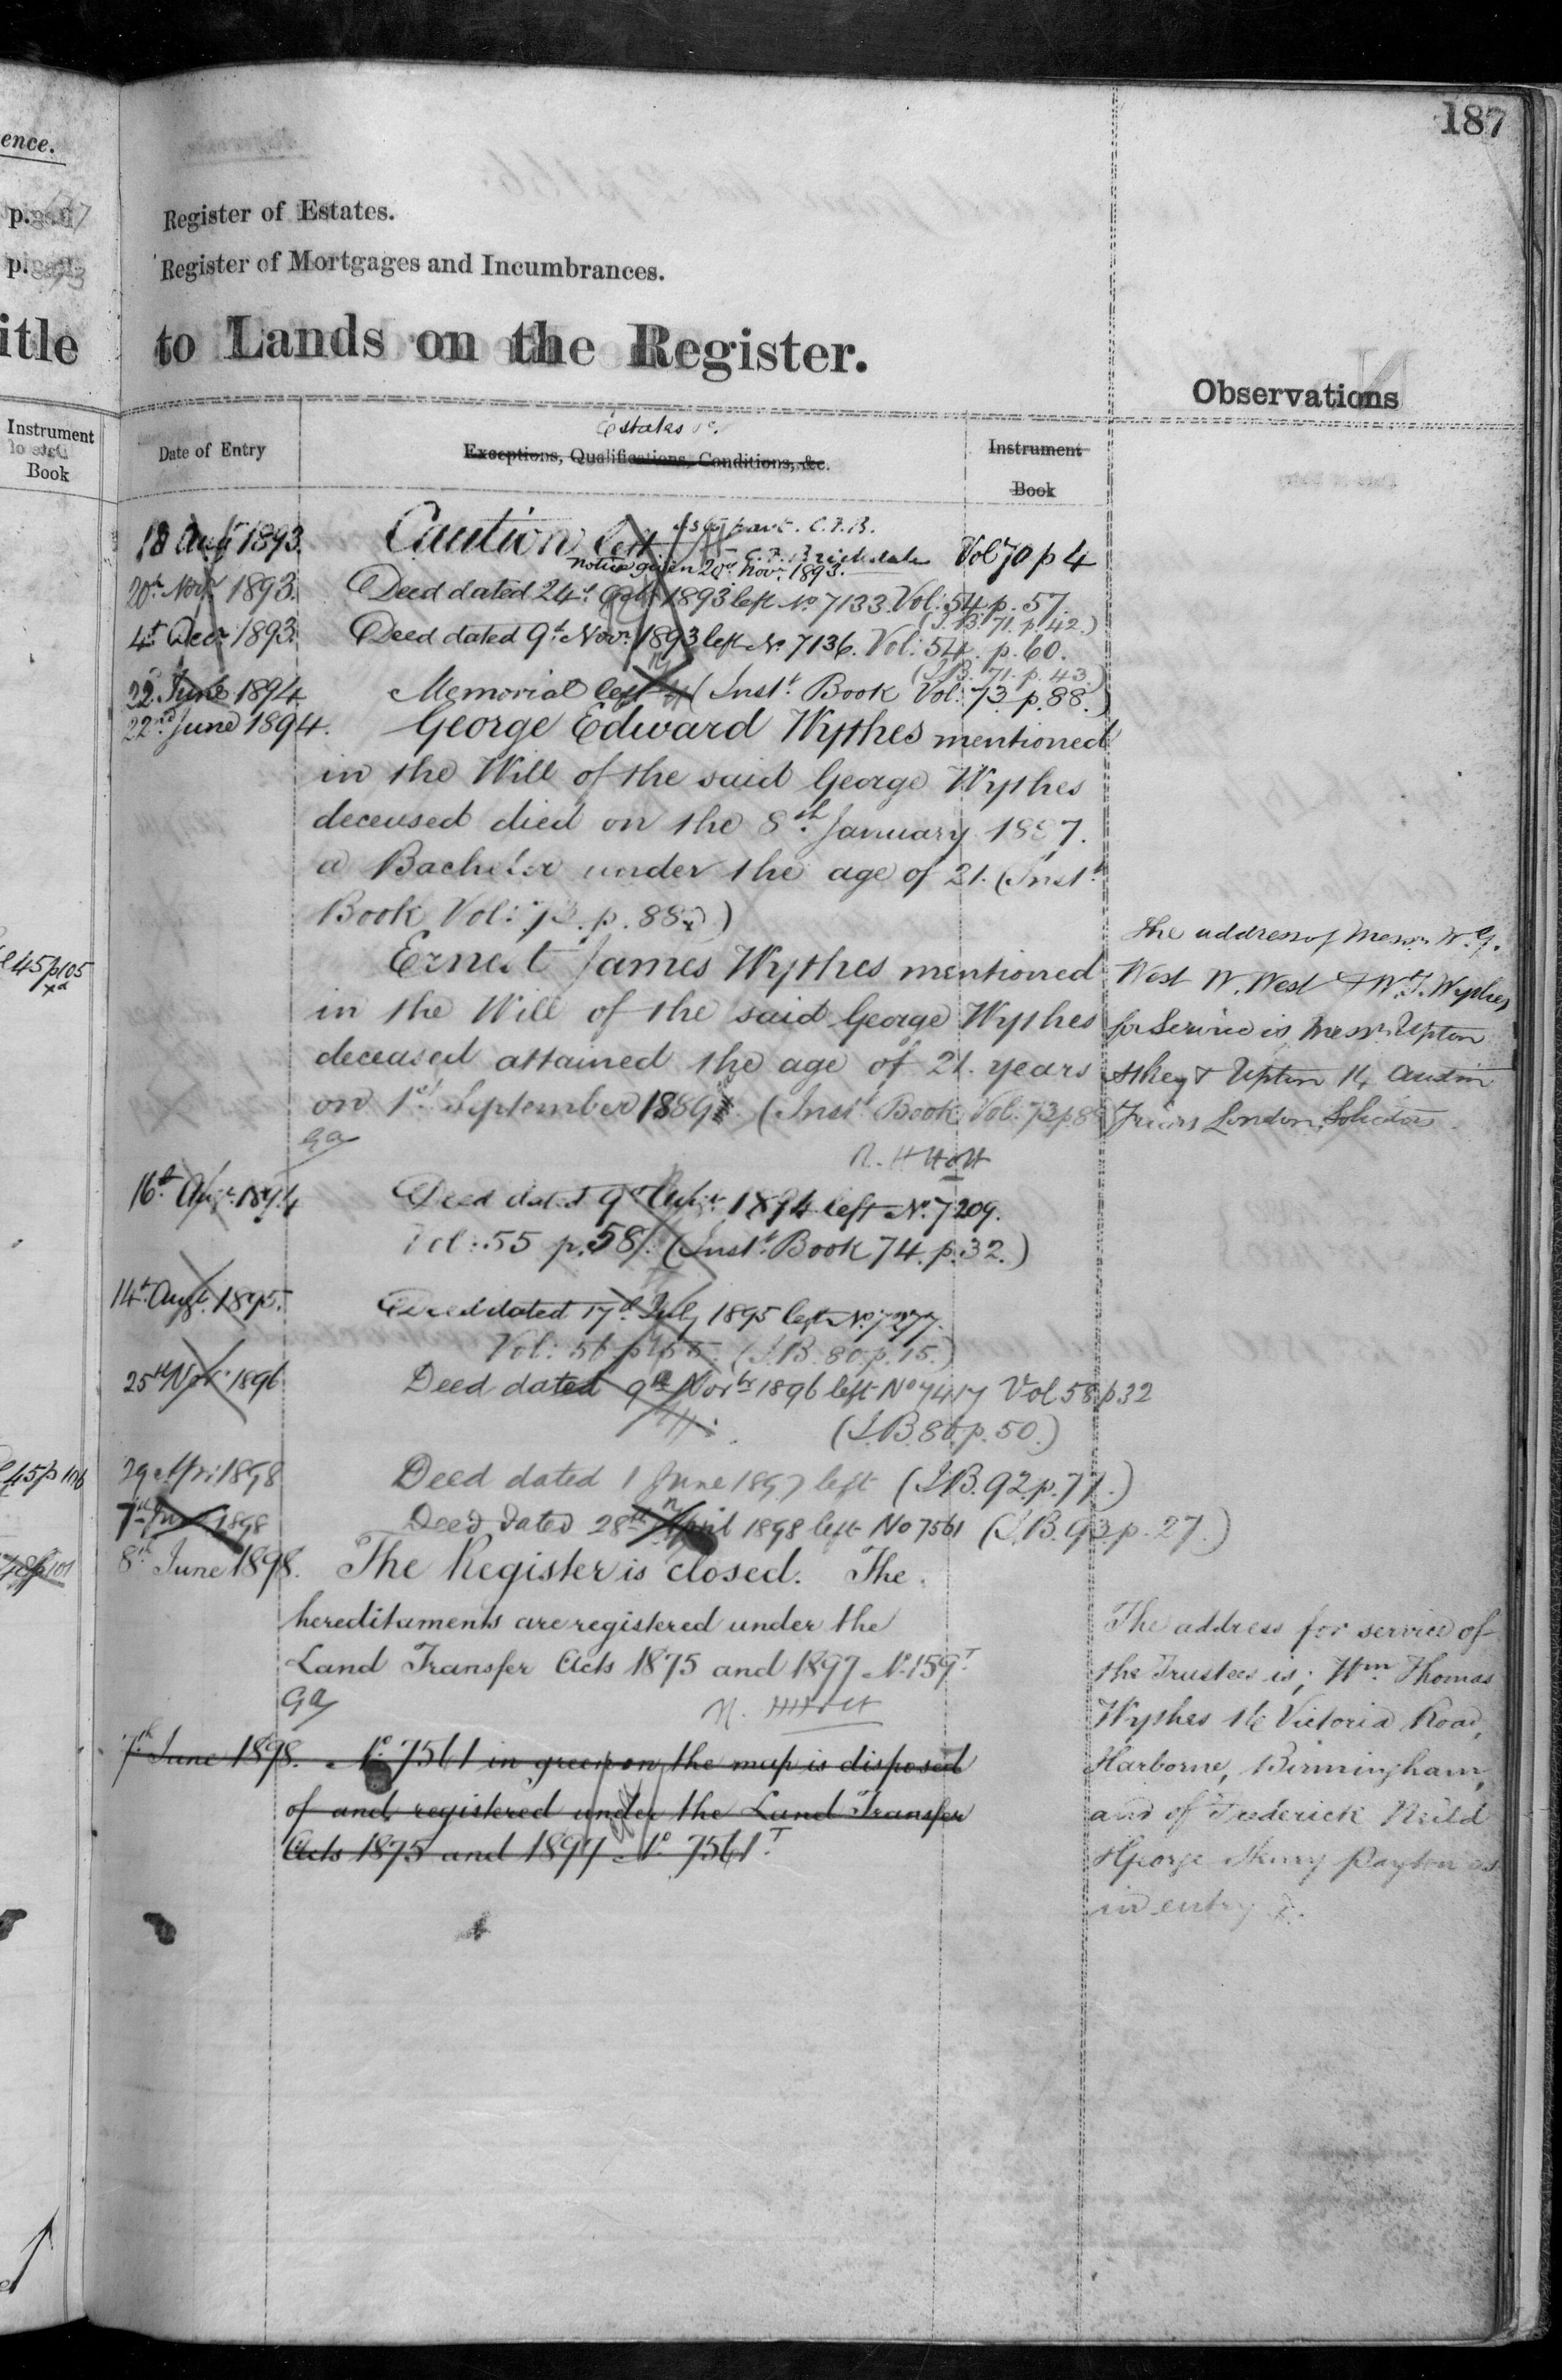 187
ence.
p.
p.
itle
Instrument
Book
Register of Estates.
Register of Mortgages and Incumbrances.
to Lands on the Register.
Observations
Estates &c.
Date of Entry
Exceptions, Qualifications, Conditions, &c.
Instrument
Book
18 Augt 1893. Caution left. as to part. C.F.B. Vol 70 p 4
C.F. Brickdale
notice given 20th Novr. 1893.
20th Novr 1893. Deed dated 24th Octr 1893 left No 7133. Vol: 54. p. 57.
(I.B. 71. p. 42.)
4th Decr 1893. Deed dated 9th Novr. 1893 left No. 7136. Vol: 54. p. 60.
(I.B. 71. p. 43.)
22 June 1894. Memorial left (Inst. Book Vol: 73. p. 88.)
22nd June 1894. George Edward Wythes mentioned
in the Will of the said George Wythes
deceased died on the 8th January 1887.
a Bachelor under the age of 21. (Inst.
Book Vol: 73. p. 88.)
Ernest James Wythes mentioned
in the Will of the said George Wythes
deceased attained the age of 21. years
on 1st September 1889. (Inst. Book Vol. 73 p 88
The address of Messrs W. G.
West W. West & W. T. Wythes
for Service is, Messrs Upton
Atkey & Upton 14 Austin
Friars London. Solicitors
45 p 105
16th Augt. 1894 Deed dated 9th Augt. 1894 left No. 7209.
Vol: 55 p. 58. (Inst. Book 74. p. 32.)
14th Augt. 1895. Deed dated 17th July 1895 left No. 7277.
Vol: 56 p. 55. (I.B. 80. p. 15.)
25th Novr 1896 Deed dated 9th Novbr 1896 left No 7417 Vol 58 p 32
(I.B. 86. p. 50.)
45 p 106
29 Apr: 1898 Deed dated 1 June 1897 left (I.B. 92. p. 77.)
7th June 1898 Deed dated 28th April 1898 left No 7561 (I.B. 93. p. 27.)
8th June 1898. The Register is closed. The
hereditaments are registered under the
Land Transfer Acts 1875 and 1897 No. 159T
7th June 1898. No. 7561 in green on the map is disposed
of and registered under the Land Transfer
Acts 1875 and 1897 No. 7561T.
The address for service of
the Trustees is; Wm Thomas
Wythes 16 Victoria Road,
Harborne, Birmingham,
and of Frederick Neild
& George Henry Payton as
in entry